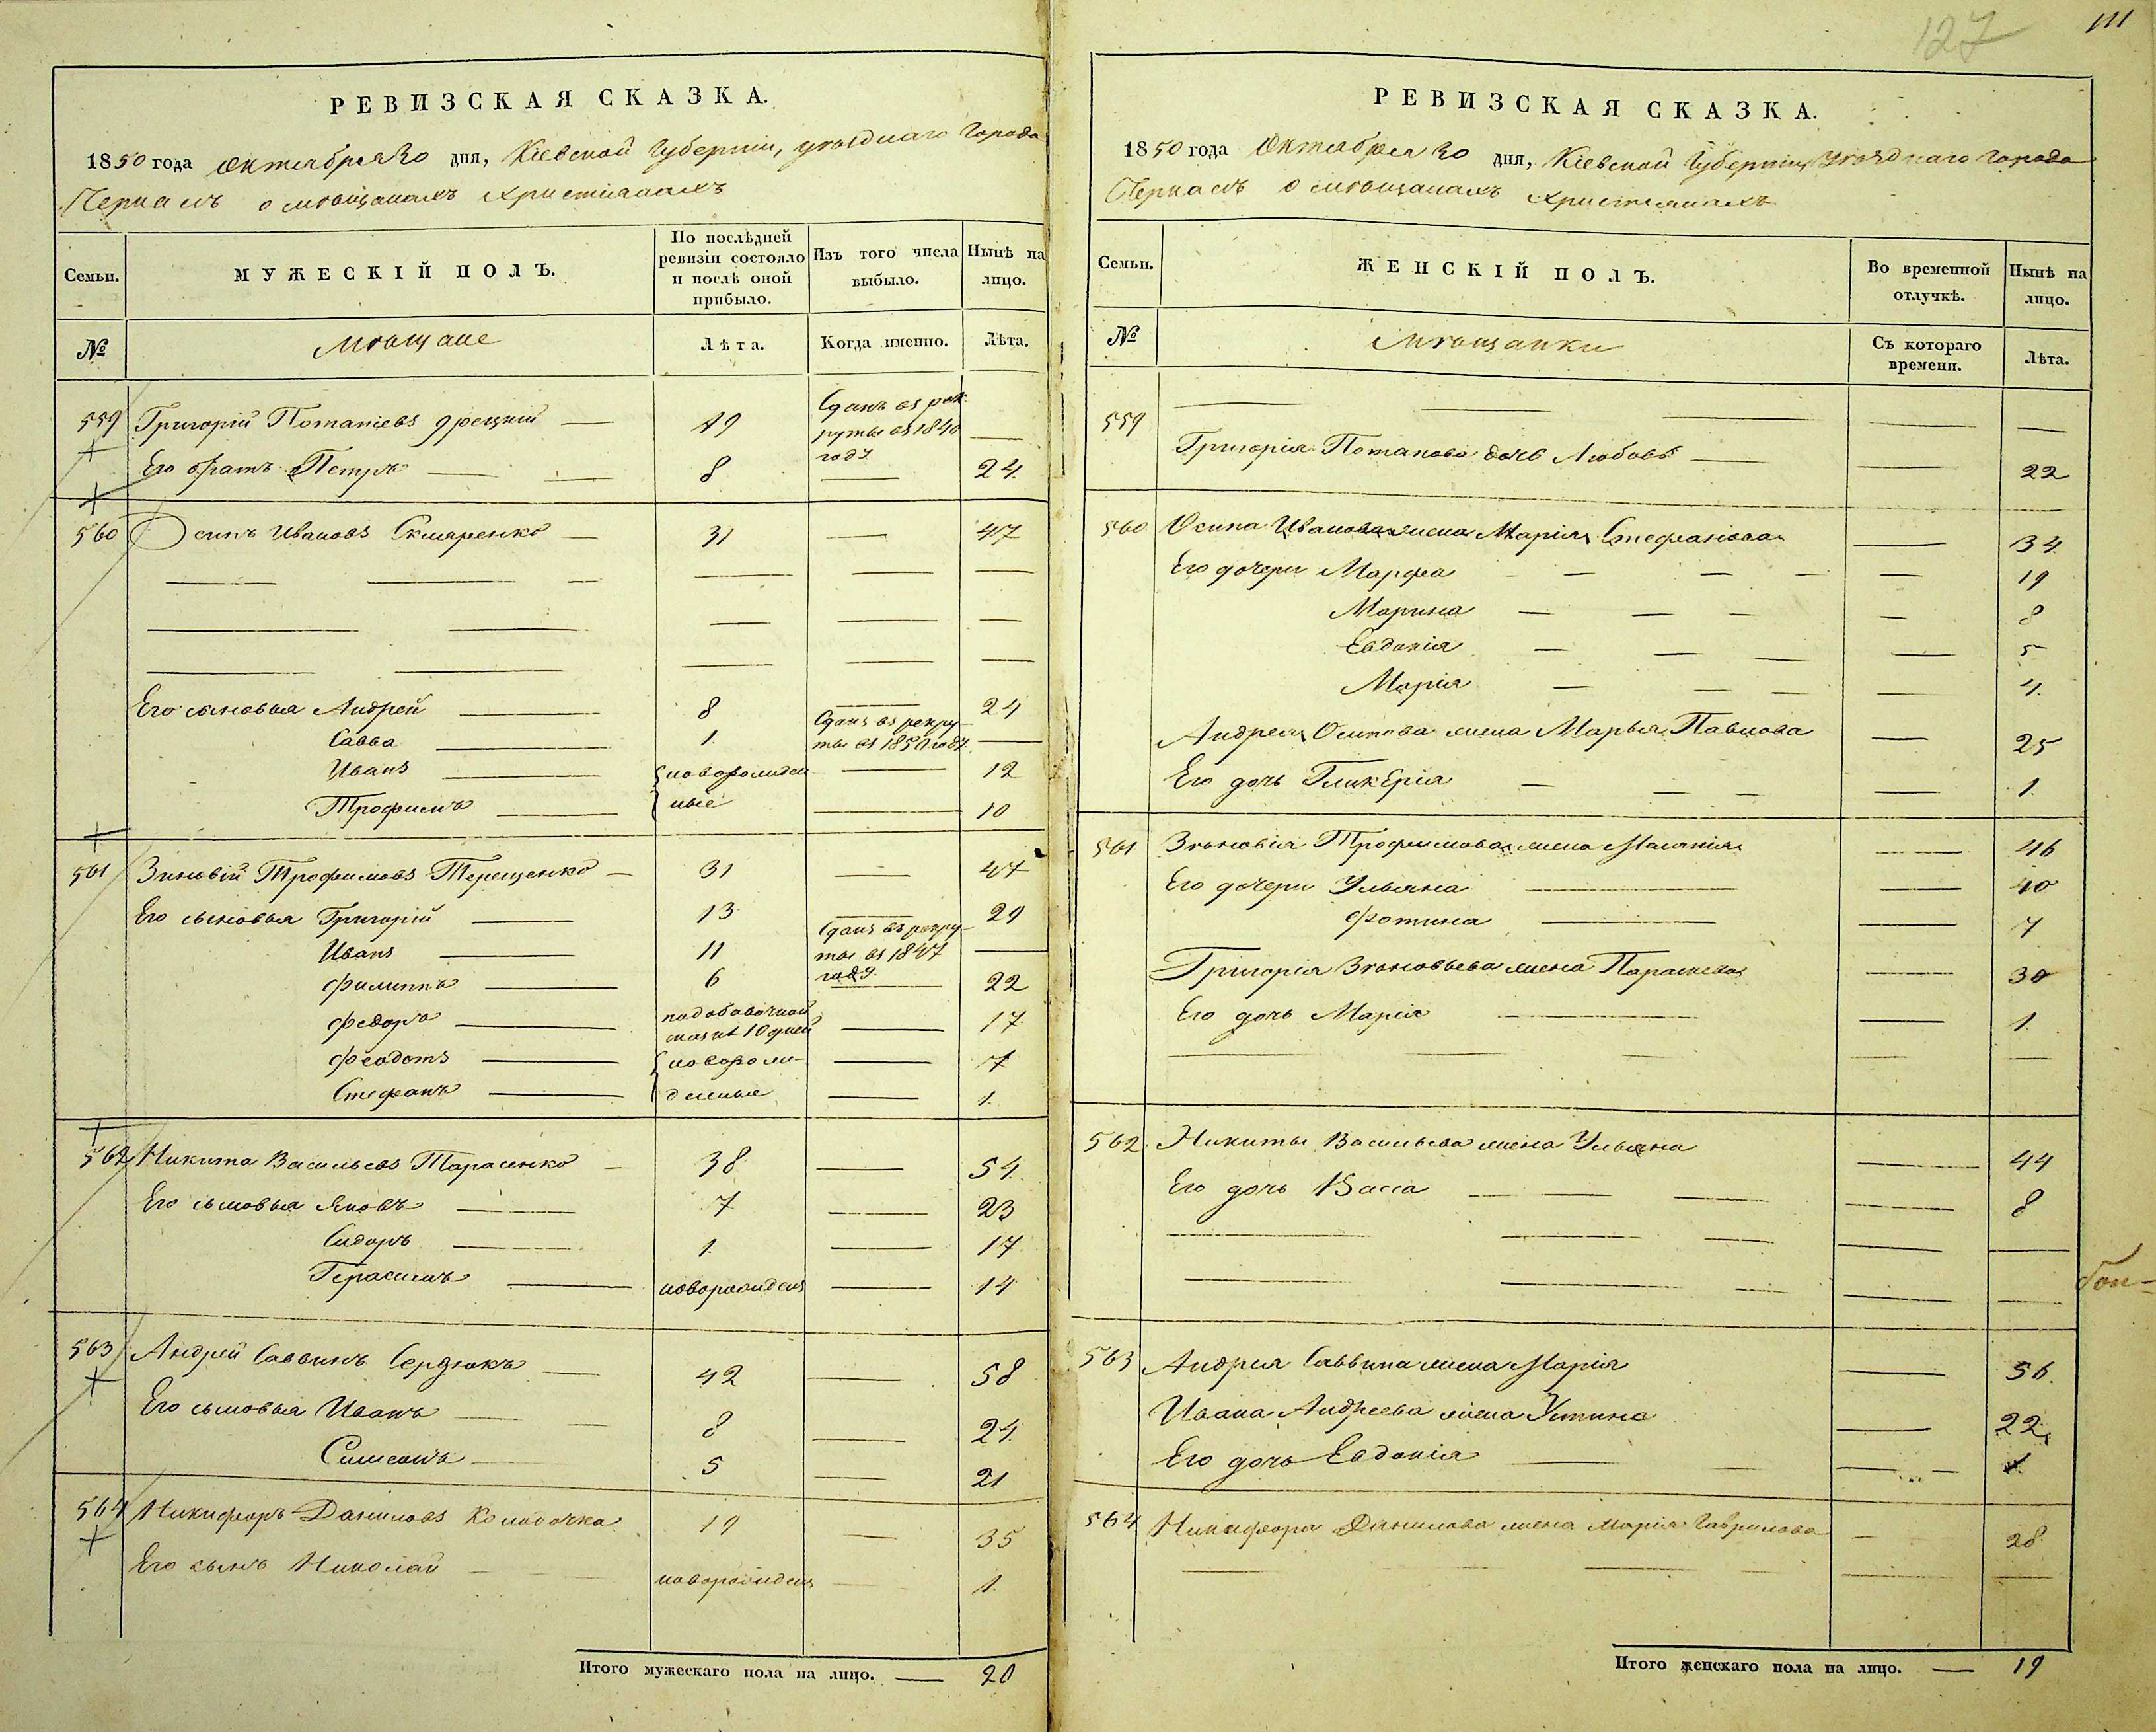 127
111
РЕВИЗСКАЯ СКАЗКА.
1850 года Октября 20 дня, Кіевской Губерніи, уѣзднаго города
Черкасъ о мѣщанахъ христіанахъ
Семьи.
МУЖЕСКІЙ ПОЛЪ.
По послѣдней ревизіи состояло и послѣ оной прибыло.
Изъ того числа выбыло.
Нынѣ на лицо.
№
Мѣщане
Лѣта.
Когда именно.
Лѣта.
559 Григорій Потапіевъ — 19 Сданъ въ рекруты въ 1840 году —
Его братъ Петръ — — 8 — 24.
560 Осипъ Ивановъ Скляренко — 31 — 47
— — — — — —
— — — — —
— — — — —
Его сыновья Андрей — 8 — 24
Савва — 1. Сданъ въ рекруты въ 1850 году. —
Иванъ — новорожден — 12
Трофимъ — ные — 10
561 Зиновій Трофимовъ Терещенко — 31 — 47
Его сыновья Григорій — 13 — 29
Иванъ — 11 Сданъ въ рекруты въ 1847 году. —
Филиппъ — 6 — 22
Федоръ — по добавочной сказкѣ 10 дней — 17
Феодотъ — новорож — 7
Стефанъ — денные — 1.
562 Никита Васильевъ Тарасенко — 38 — 54.
Его сыновья Яковъ — 7 — 23
Сидоръ — 1. — 17
Герасимъ — новорожденъ — 14
563 Андрей Саввинъ Сердюкъ — 42 — 58
Его сыновья Иванъ — — 8 — 24.
Симеонъ — 5 — 21
564 Никифоръ Даниловъ Колодочка 19 — 35
Его сынъ Николай — — — новорожденъ — 1.
Итого мужескаго пола на лицо. — 20
РЕВИЗСКАЯ СКАЗКА.
1850 года Октября 20 дня, Кіевской Губерніи, уѣзднаго города
Черкасъ о мѣщанахъ христіанахъ
Семьи.
ЖЕНСКІЙ ПОЛЪ.
Во временной отлучкѣ.
Нынѣ на лицо.
№
Мѣщанки
Съ котораго времени.
Лѣта.
559 — — — — —
Григорія Потапова дочь Любовь — — 22
560 Осипа Иванова жена Марія Стефанова — 34.
Его дочери Марфа — — — — — 19
Марина — — — — 8
Евдокія — — — — 5
Марія — — — — 4.
Андрея Осипова жена Марья Павлова — 25
Его дочь Гликерія — — — — 1.
561 Зѣновія Трофимова жена Меланія — 46
Его дочери Ульяна — — 10
Фотина — — 7
Григорія Зѣновьева жена Параскева — 30
Его дочь Марія — — 1.
— — — — —
562 Никиты Васильева жена Ульяна — 44
Его дочь Васса — — — — 8
— — — — —
— — — — —
563 Андрея Саввина жена Марія — 56.
Ивана Андреева жена Устина — 22.
Его дочь Евдокія — — — — 1.
564 Никифора Данилова жена Марія Гаврилова — 28
— — — — —
Итого женскаго пола на лицо. — 19